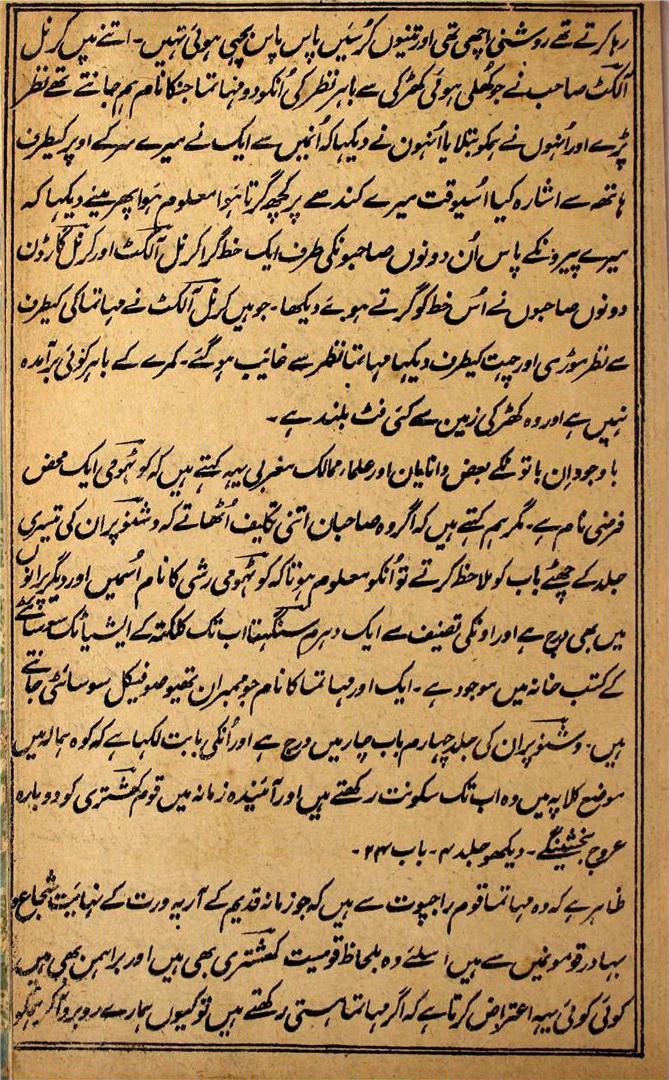 رہا کرتے تھے روشنی اچھی تھی اور تینوں کرسئیں پاس پاس بچھی ہوئی تہیں۔ اتنے میں کرنل
الکٹ صاحب نے جو کھلی ہوئی کھڑکی سے باہر نظر کی اُنکو دو مہاتما جنکا نام ہم جانتے تھے نظر
پڑے اور اُنہوں نے ہمکو بتلایا اُنہون نے دیکہا کہ اُنمیں سے ایک نے میرے سر کے اوپر کیطرف
ہاتھہ سے اشارہ کیا اُسیوقت میرے کندھے پر کچھ گرتا ہوا معلوم ہوا پھر مینے دیکہا کہ
میرے پیرونکے پاس اُن دونوں صاحبونکی طرف ایک خط گرا کرنل آلکٹ اور کرنل گارڈن
دونوں صاحبوں نے اُس خط کو گرتے ہوئے دیکھا۔ جوہیں کرنل آلکٹ نے مہاتما کی کیطرف
سے نظر موڑی اور چہت کیطرف دیکہا مہاتما نظر سے غائب ہو گئے۔ کمرے کے باہر کوئی برآمدہ
نہیں ہے اور وہ کھڑکی زمین سے کئی فٹ بلند ہے۔
باوجود اِن باتونکے بعض دانایان اور علماء ممالک مغربی یہہ کہتے ہیں کہ کوٹہومی ایک محض
فرضی نام ہے۔ مگر ہم کہتے ہیں کہ اگر وہ صاحبان اتنی تکلیف اُٹھاتے کہ وشنو پران کی تیسری
جلد کے چھٹے باب کو ملاحظ کرتے تو اُنکو معلوم ہوتا کہ کوٹہومی رشی کا نام اُسمیں اور دیگر پرانوں
میں بھی درج ہے اور اونکی تصنیف سے ایک دہرم سنگہتا اب تک کلکتہ کے ایشیاٹک سوسائٹے
کے کتب خانہ میں موجود ہے۔ ایک اور مہاتما کا نام جو ممبران تھیوصوفیکل سوسائٹی جانتے
ہیں۔ وشنو پران کی جلد چہارم باب چار میں درج ہے اور اُنکی بابت لکہا ہے کہ کوہ ہمالہ میں
موضع کلاپہ میں وہ اب تک سکونت رکھتے ہیں اور آئیندہ زمانہ میں قوم کھشتری کو دوبارہ
عروج بخشینگے۔ دیکھو جلد ۴۔ باب ۲۴۔
ظاہر ہے کہ وہ مہاتما قوم راجپوت سے ہیں کہ جو زمانہ قدیم کے آریہ ورت کے نہایت شجاع و
بہادر قومونمیں سے ہیں اسلئے وہ بلحاظ قومیت کھشتری بھی ہیں اور براہمن بھی ہیں
کوئی کوئی یہہ اعتراض کرتا ہے کہ اگر مہاتما ہستی رکھتے ہیں تو کیوں ہمارے روبرو آکر ہمکو